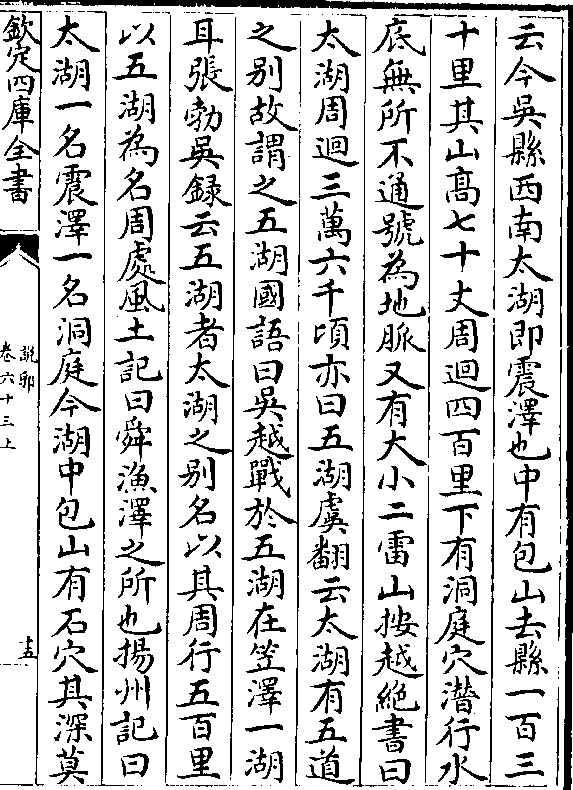 云今吳縣西南太湖即震澤也中有包山去縣一百三
十里其山髙七十丈周迴四百里下有洞庭穴潛行水
底無所不通號為地脈又有大小二雷山按越絶書曰
太湖周迴三萬六千頃亦曰五湖虞翻云太湖有五道
之别故謂之五湖國語曰吳越戰於五湖在笠澤一湖
耳張勃吳録云五湖者太湖之别名以其周行五百里
以五湖為名周處風土記曰舜漁澤之所也揚州記曰
太湖一名震澤一名洞庭今湖中包山有石穴其深莫
欽定四庫全書
說郛
卷六十三上
十五